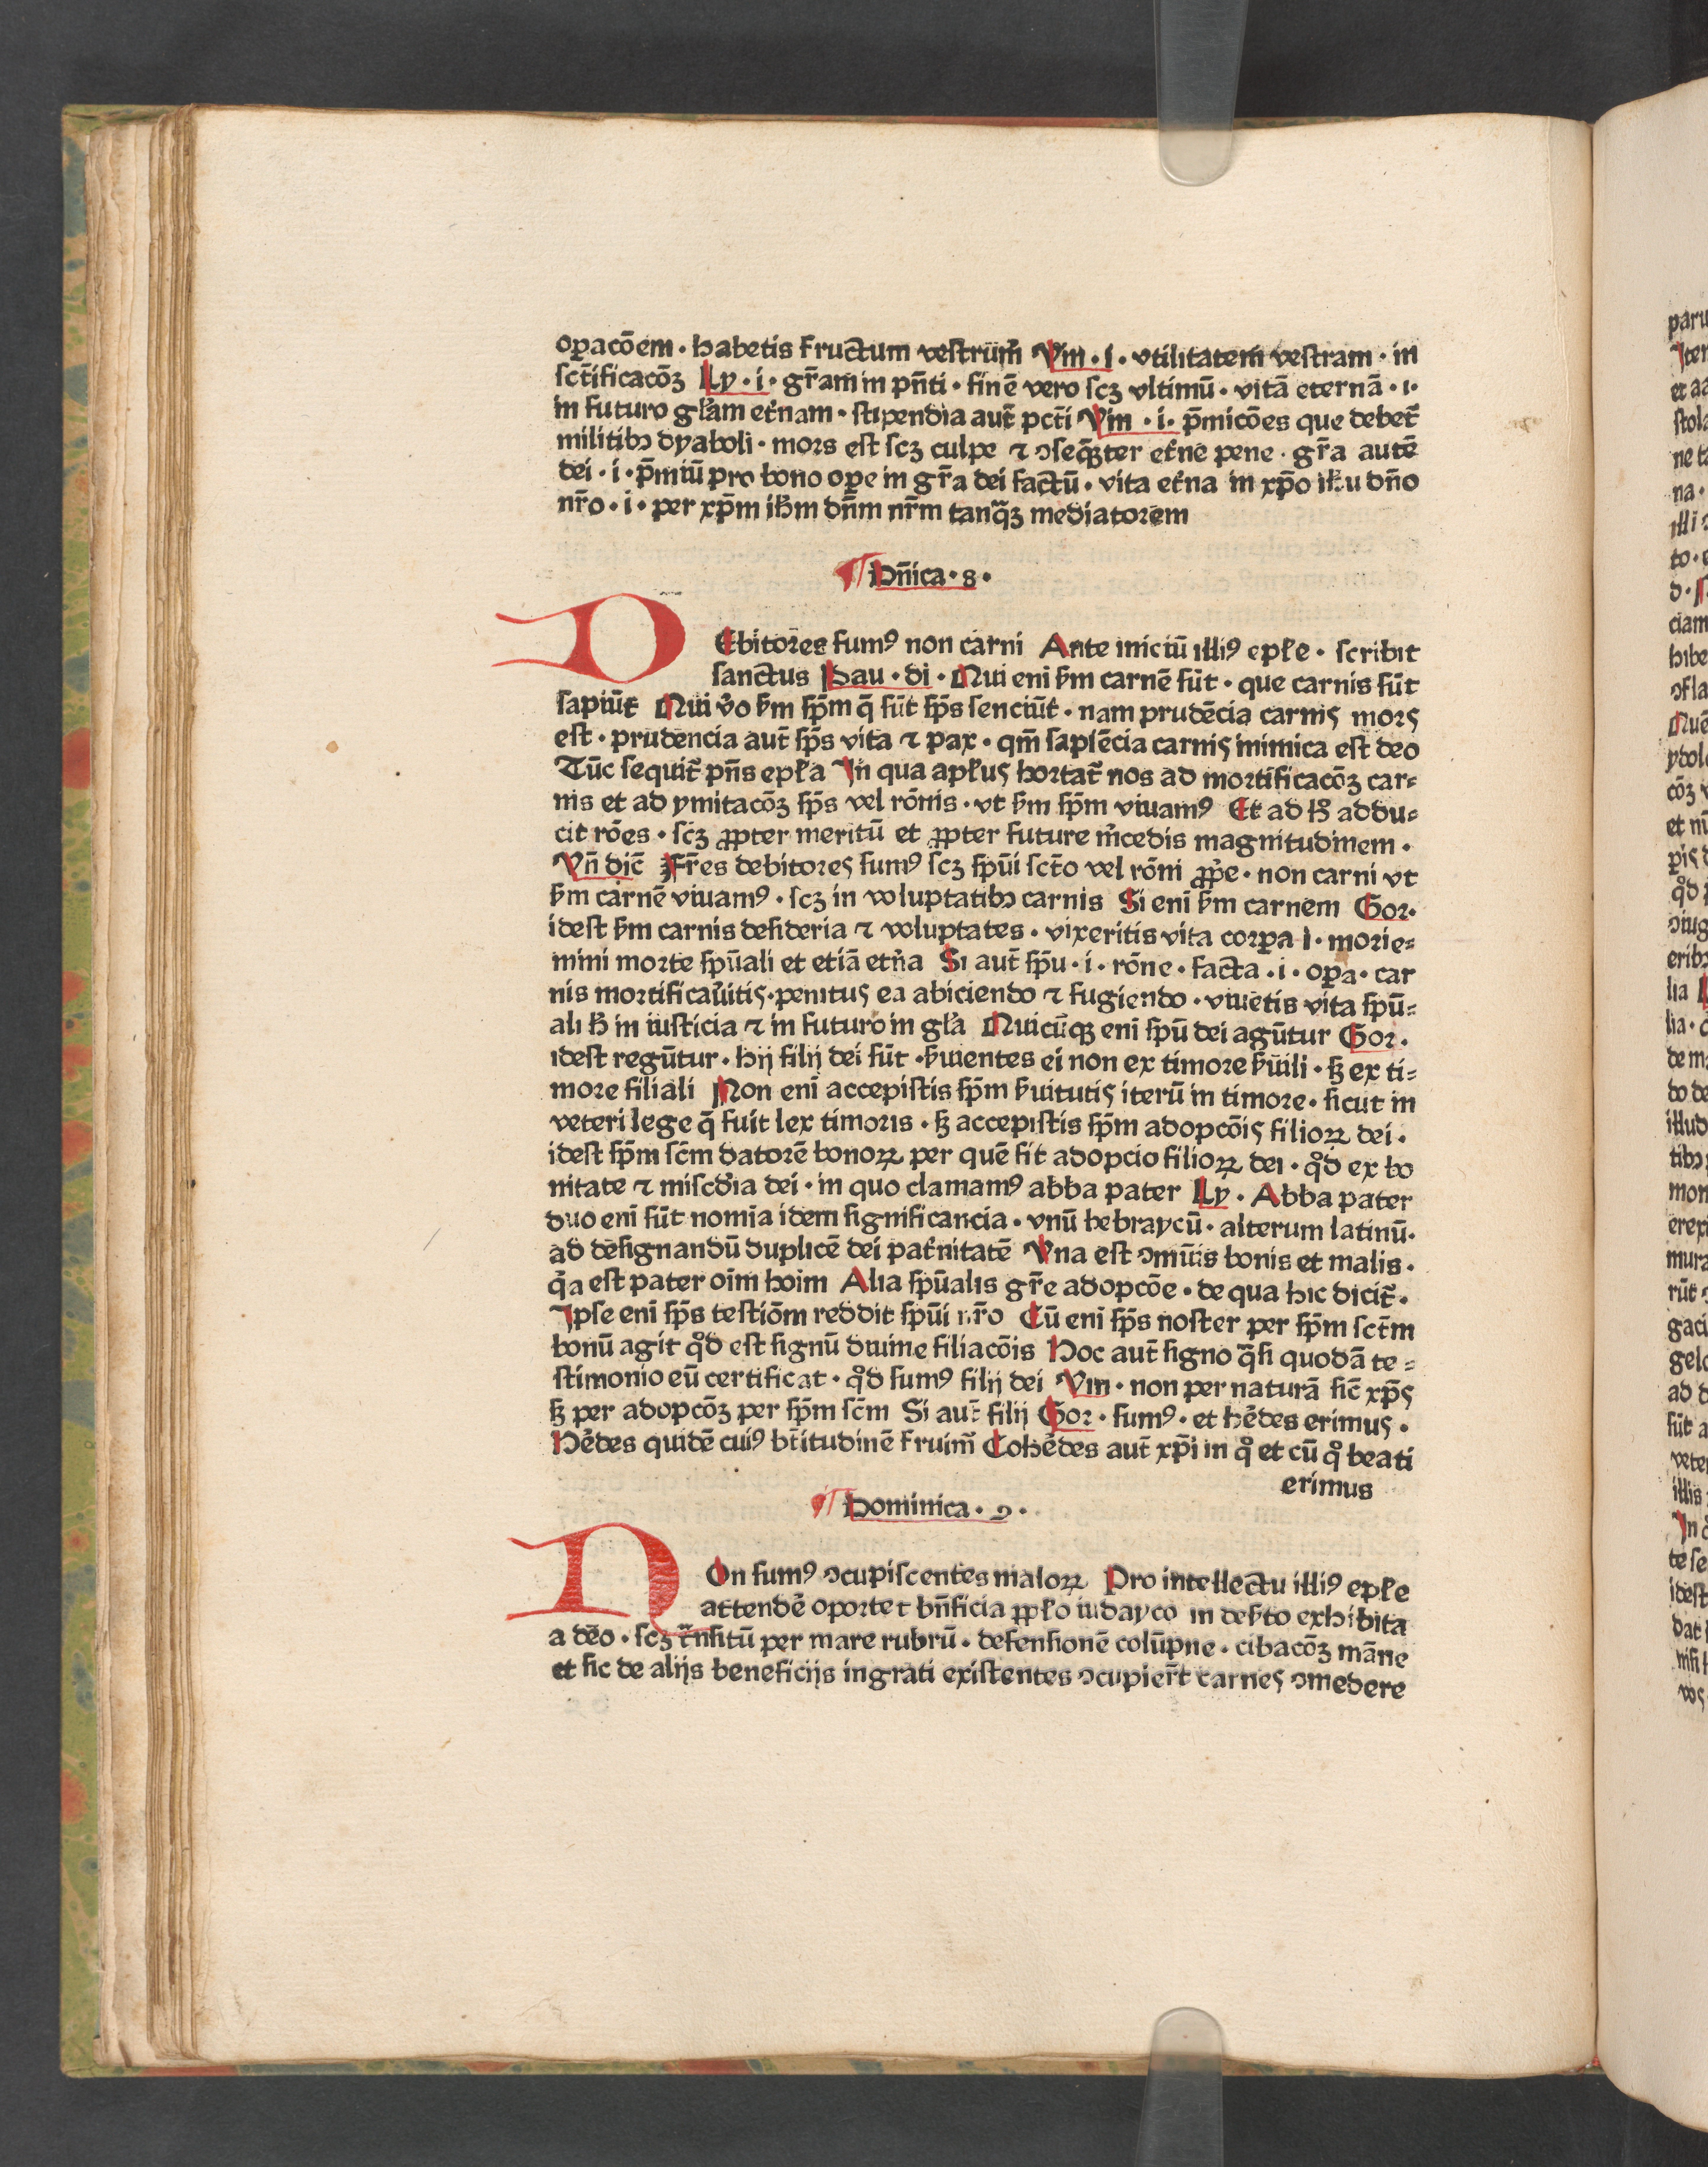 oꝑacōem · habetis fructum vestrūm̄ Vin · i · vtilitatem vestram · in
sct̄ificacōꝫ Ly · i · gr̄am in pn̄ti · finē vero scꝫ vltimū · vitā eternā · i ·
in futuro gl̓am et̓nam · stipendia aut̄ pct̄i Vin · i · p̄micōes que debet̄
militibꝰ dyaboli · mors est scꝫ culpe ⁊ ꝯseq̄ꝫter et̓ne pene · gr̄a autē
dei · i · p̄miū pro bono oꝑe in gr̄a dei factū · vita et̓na in xp̄o ih̄u dn̄o
nr̄o · i · per xp̄m ih̄m dn̄m nr̄m tanq̄ꝫ mediatorem
¶ Dn̄ica · 8 ·
DEbitores sumꝰ non carni Ante iniciū illiꝰ epl̓e · scribit
sanctus Pau · di · Qui enī ẜm carnē sūt · que carnis sūt
sapiūt Qui v̓o ẜm sp̄m q̄ sūt sp̄s senciūt · nam prudēcia carnis mors
est · prudencia aut̄ sp̄s vita ⁊ pax · qm̄ sapiēcia carnis inimica est deo
Tūc sequit̄ pn̄s epl̓a In qua apl̓us hortat̄ nos ad mortificacōꝫ car⸗
nis et ad ymitacōꝫ sp̄s vel rōnis · vt ẜm sp̄m viuamꝰ Et ad hͦ addu⸗
cit rōes · scꝫ ꝓpter meritū et ꝓpter future m̓cedis magnitudinem ·
Vn̄ dic̄ Fr̄es debitores sumꝰ scꝫ spūi sct̄o vel rōni ꝓp̓e · non carni vt
ẜm carnē viuamꝰ · scꝫ in voluptatibꝰ carnis Si enī ẜm carnem Gor ·
idest ẜm carnis desideria ⁊ voluptates · vixeritis vita corꝑa l · morie⸗
mini morte spūali et etiā et̓na Si aut̄ spū · i · rōne · facta · i · oꝑa · car
nis mortificau̓itis · penitus ea abiciendo ⁊ fugiendo · viuetis vita spū⸗
ali h̓ in iusticia ⁊ in futuro in gl̓a Quicūqꝫ enī spū dei agūtur Gor ·
idest regūtur · hij filij dei sūt · ẜuientes ei non ex timore ẜuili · ſꝫ ex ti⸗
more filiali Non enī accepistis sp̄m ẜuitutis iterū in timore · sicut in
veteri lege q̄ fuit lex timoris · ſꝫ accepistis sp̄m adopcōis filioꝝ dei ·
idest sp̄m sc̄m datorē bonoꝝ per quē fit adopcio filioꝝ dei · qͦd ex bo
nitate ⁊ miscd̓ia dei · in quo clamamꝰ abba pater Ly · Abba pater
duo enī sūt nomīa idem significancia · vnū hebraycū · alterum latinū ·
ad designandū duplicē dei pat̓nitatē Vna est ꝯmūis bonis et malis ·
q̓a est pater oīm hoīm Alia spūalis gr̄e adopcōe · de qua hic dicit̄ ·
Ipse enī sp̄s testiōm reddit spūi nr̄o Cū enī sp̄s noster per sp̄m sct̄m
bonū agit qͦd est signū diuine filiacōis Hoc aut̄ signo q̄si quodā te⸗
stimonio eū certificat · qͦd sumꝰ filij dei Vin · non per naturā sic̄ xp̄s
ſꝫ per adopcōꝫ per sp̄m sc̄m Si aut̄ filij Gor · sumꝰ · et he̓des erimus ·
He̓des quidē cuiꝰ bt̄itudinē fruim̄ Cohe̓des aut̄ xp̄i in qͦ et cū qͦ beati
erimus
¶ Dominica · 9 ·
NOn sumꝰ ꝯcupiscentes maloꝝ Pro intellectu illiꝰ epl̓e
attendē oportet bn̄ficia ꝓpl̓o iudayco in deẜto exhibita
a deo · scꝫ tr̄nsitū per mare rubrū · defensionē colūpne · cibacōꝫ māne
et sic de alijs beneficijs ingrati existentes ꝯcupier̄t carnes ꝯmedere